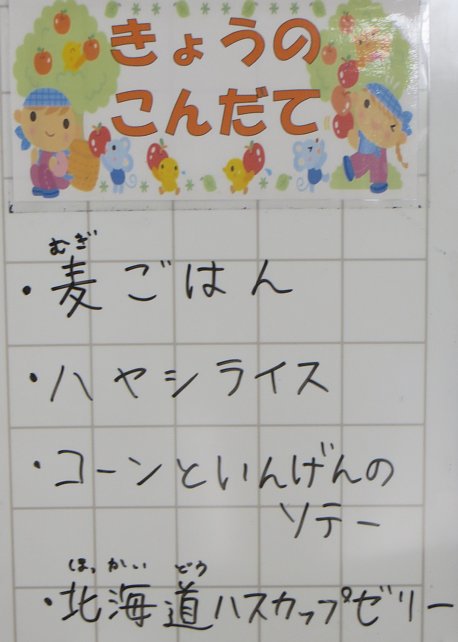 きょうの
こんだて
むぎ
・麦ごはん
・ハヤシライス
・コーンといんげんの
ソテー
ほっかいどう
・北海道ハスカップゼリー